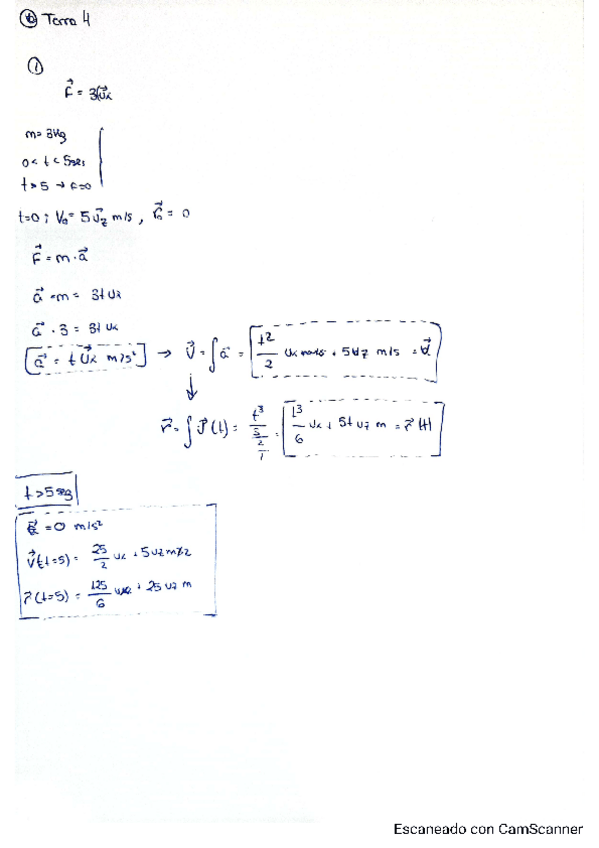 Tema 4
①
F⃗ = 3t u⃗x
m = 3kg
0 < t < 5seg
t > 5 → F=0
t=0 ; V₀ = 5 u⃗z m/s , r⃗₀ = 0
F⃗ = m · a⃗
a⃗ · m = 3t ux
a⃗ · 3 = 3t ux
a⃗ = t u⃗x m/s² → v⃗ = ∫ a⃗ = t²/2 ux + 5uz m/s = v⃗
↓
r⃗ = ∫ v⃗(t) = t³/6 ux + 5t uz m = r⃗(t)
t > 5 seg
a⃗ = 0 m/s²
v⃗(t=5) = 25/2 ux + 5uz m/s
r⃗(t=5) = 125/6 ux + 25 uz m
Escaneado con CamScanner